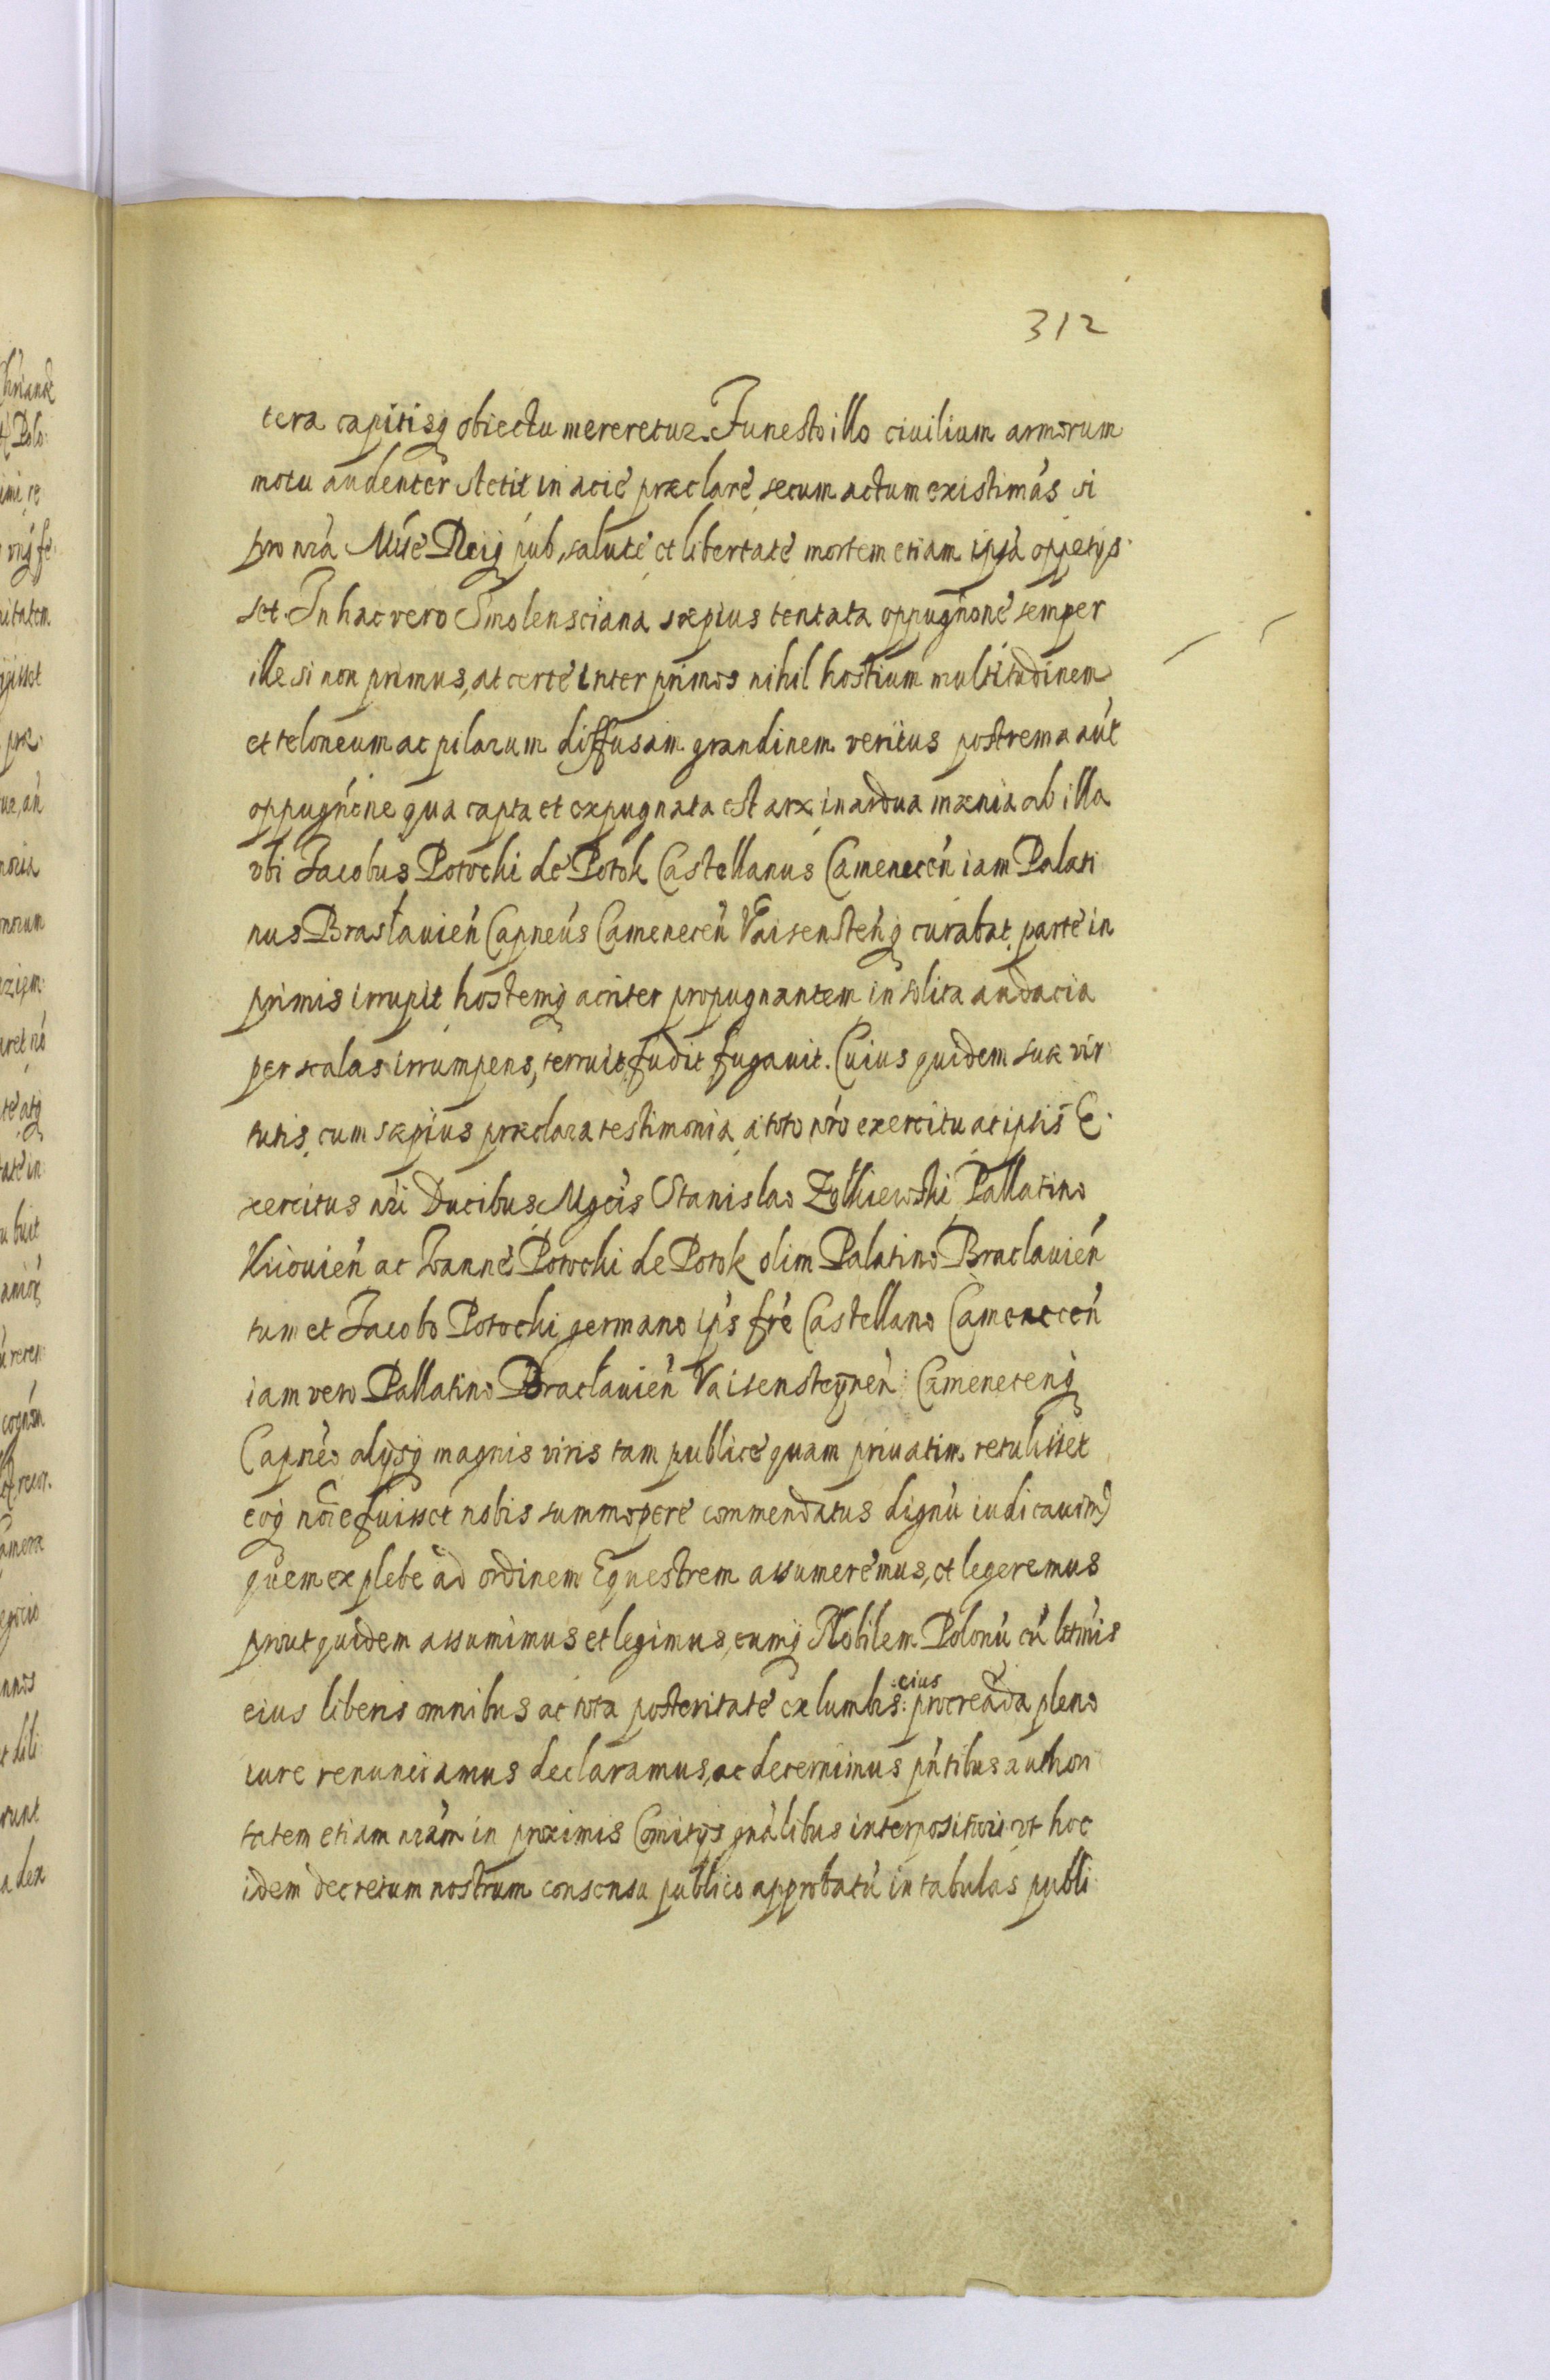 312
tera capitisq obiectu mereretur. Funesto illo ciuilium armorum
motu audenter stetit in acie præclare secum actum existimás si
pro nrá Mtte Reiq pub, salute et libertate mortem etiam ipsá oppetijs
set. In hac vero Smolensciana sæpius tentata oppugnóne semper
ille si non primus, at certe inter primos nihil hostium multitudinem
et teloneum ac pilarum diffusam grandinem veritus postrema aút
oppugnóne qua capta et expugnata est arx, in ardua mænia ab illa
vbi Jacobus Potocki de Potok Castellanus Camenecén iam Palati
nus Braslauień Capneús Camenecén Vaisensteńq curabat parte in
primis irrupit hostemq acriter propugnantem insolita audacia
per scalas irrumpens, terruit fudit fugauit. Cuius quidem suæ vir
tutis, cum sæpius præclara testimonia a toto nró exercitu ac ipsis E
xercitus nri Ducibus Mgcis Stanislao Zolkiewski Pallatino
Kiiouień ac Ioanne Potocki de Potok olim Palatino Braclauień
tum et Jacobo Potocki germano ips fre Castellano Camenecén
iam vero Pallatino Bracłauień Vaisensteÿnén Camenecenq
Capneo alijsq magnis viris tam publice quam priuatim retulisset
eoq noie fuisset nobis summopere commendatus dignú iudicauim9
quem ex plebe ad ordinem Equestrem assumeremus, et legeremus
prout quidem assumimus et legimus, eumq Nobilem Polonú cú letmis
eius liberis omnibus ac tota posteritate ex lumbis eius procreáda pleno
iure renunciamus declaramus, ac decernimus pńtibus authori
tatem etiam nrám in proximis Comitijs gnálibus interposituri vt hoc
idem decretum nostrum consensu publico approbatú in tabulas publi